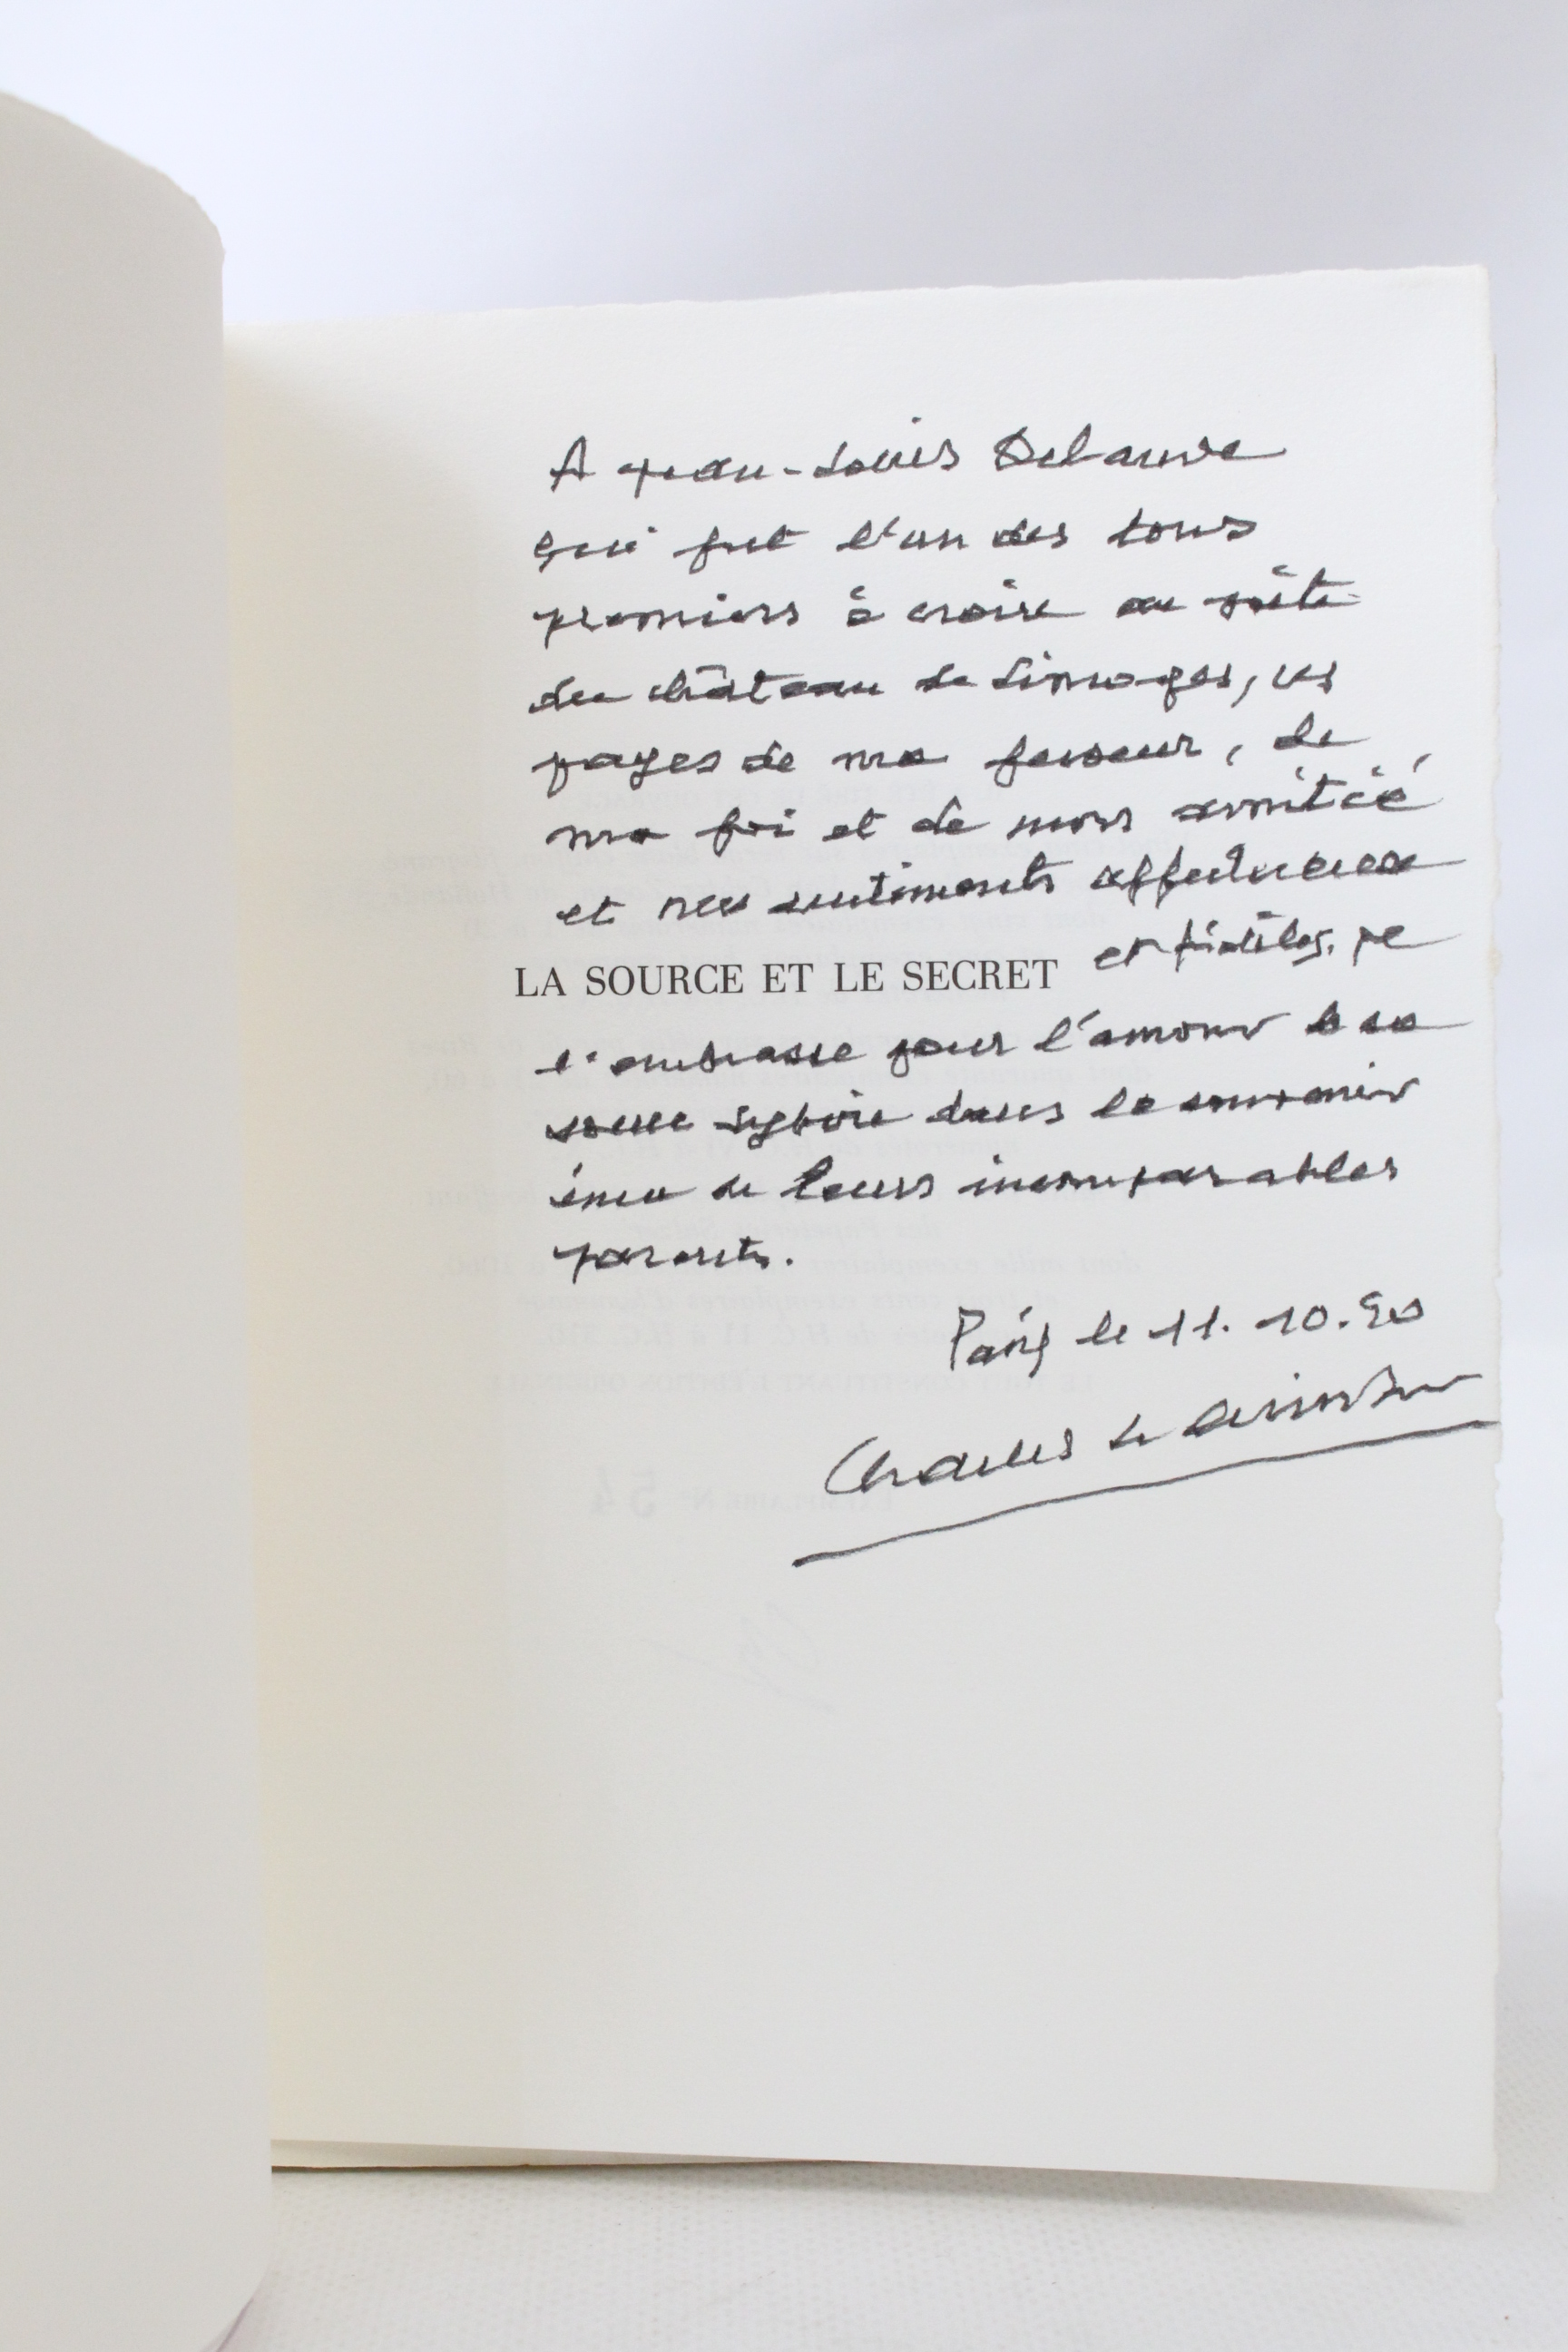 A Jean-Louis Delauve
qui fut l'un des tous
premiers à croire au poète
du château de Limoges, ces
pages de ma ferveur, de
ma foi et de mon amitié
et mes sentiments affectueux
et fidèles, je
LA SOURCE ET LE SECRET
l'embrasse pour l'amour de sa
soeur dans le souvenir
ému de leurs incomparables
parents.
Paris le 11.10.90
Charles Le Quintrec